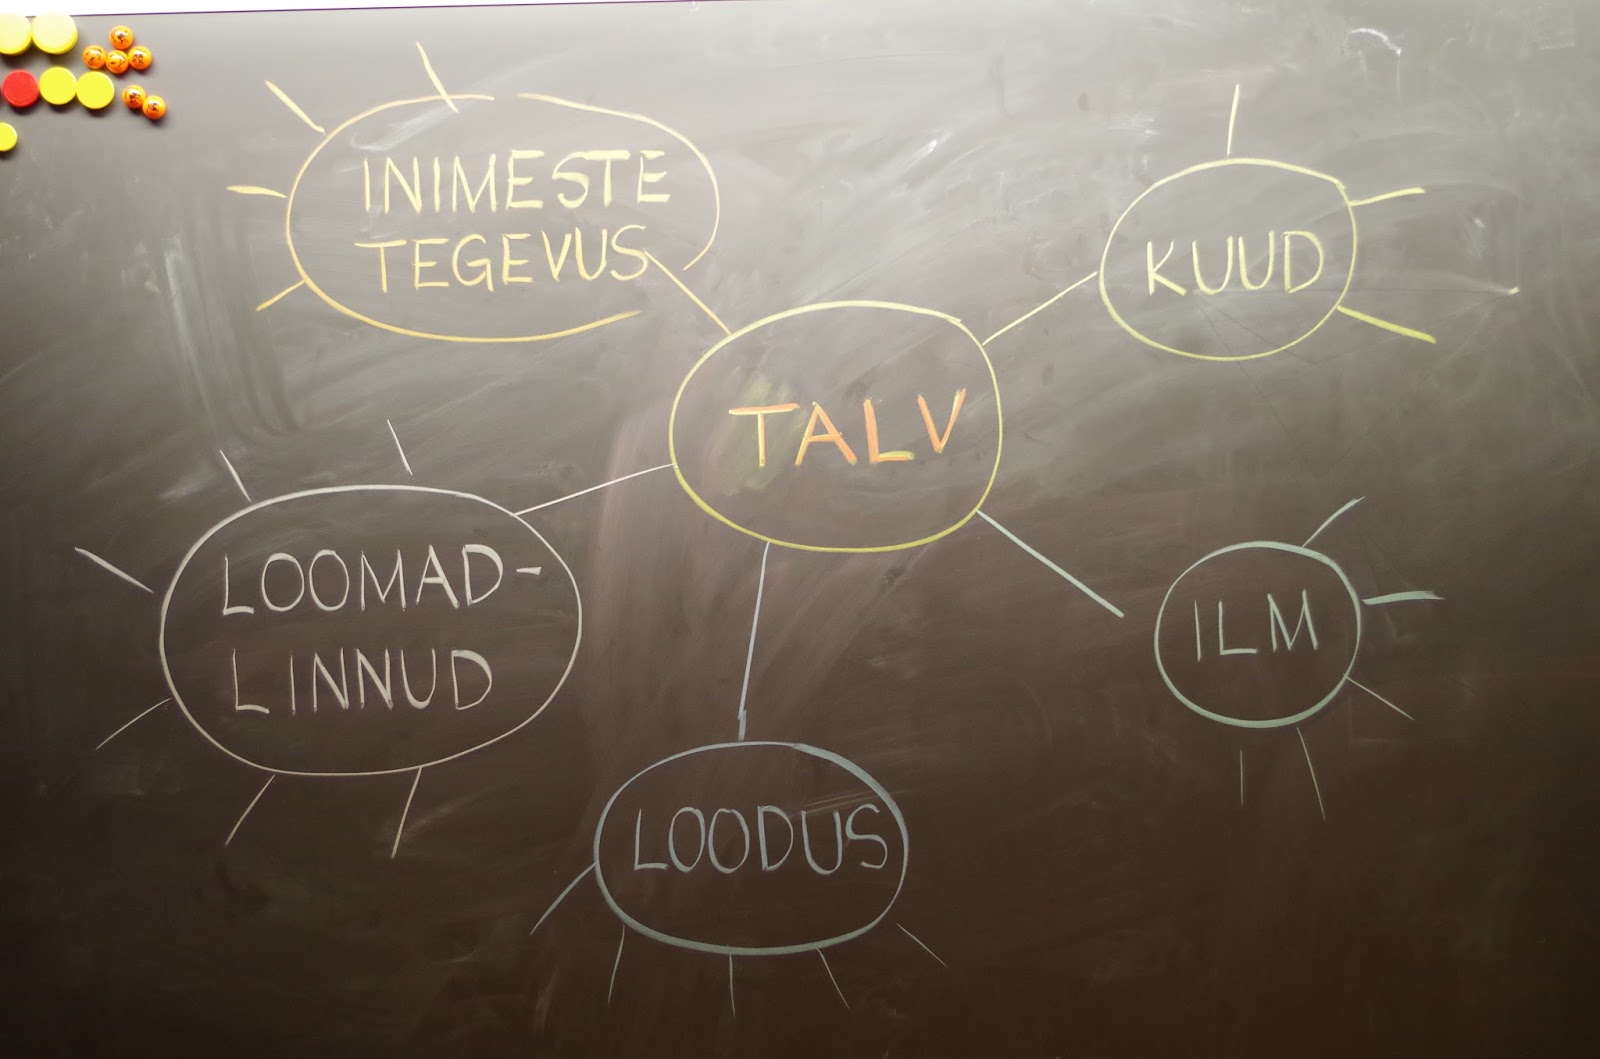 INIMESTE
TEGEVUS
KUUD
TALV
LOOMAD-
LINNUD
ILM
LOODUS